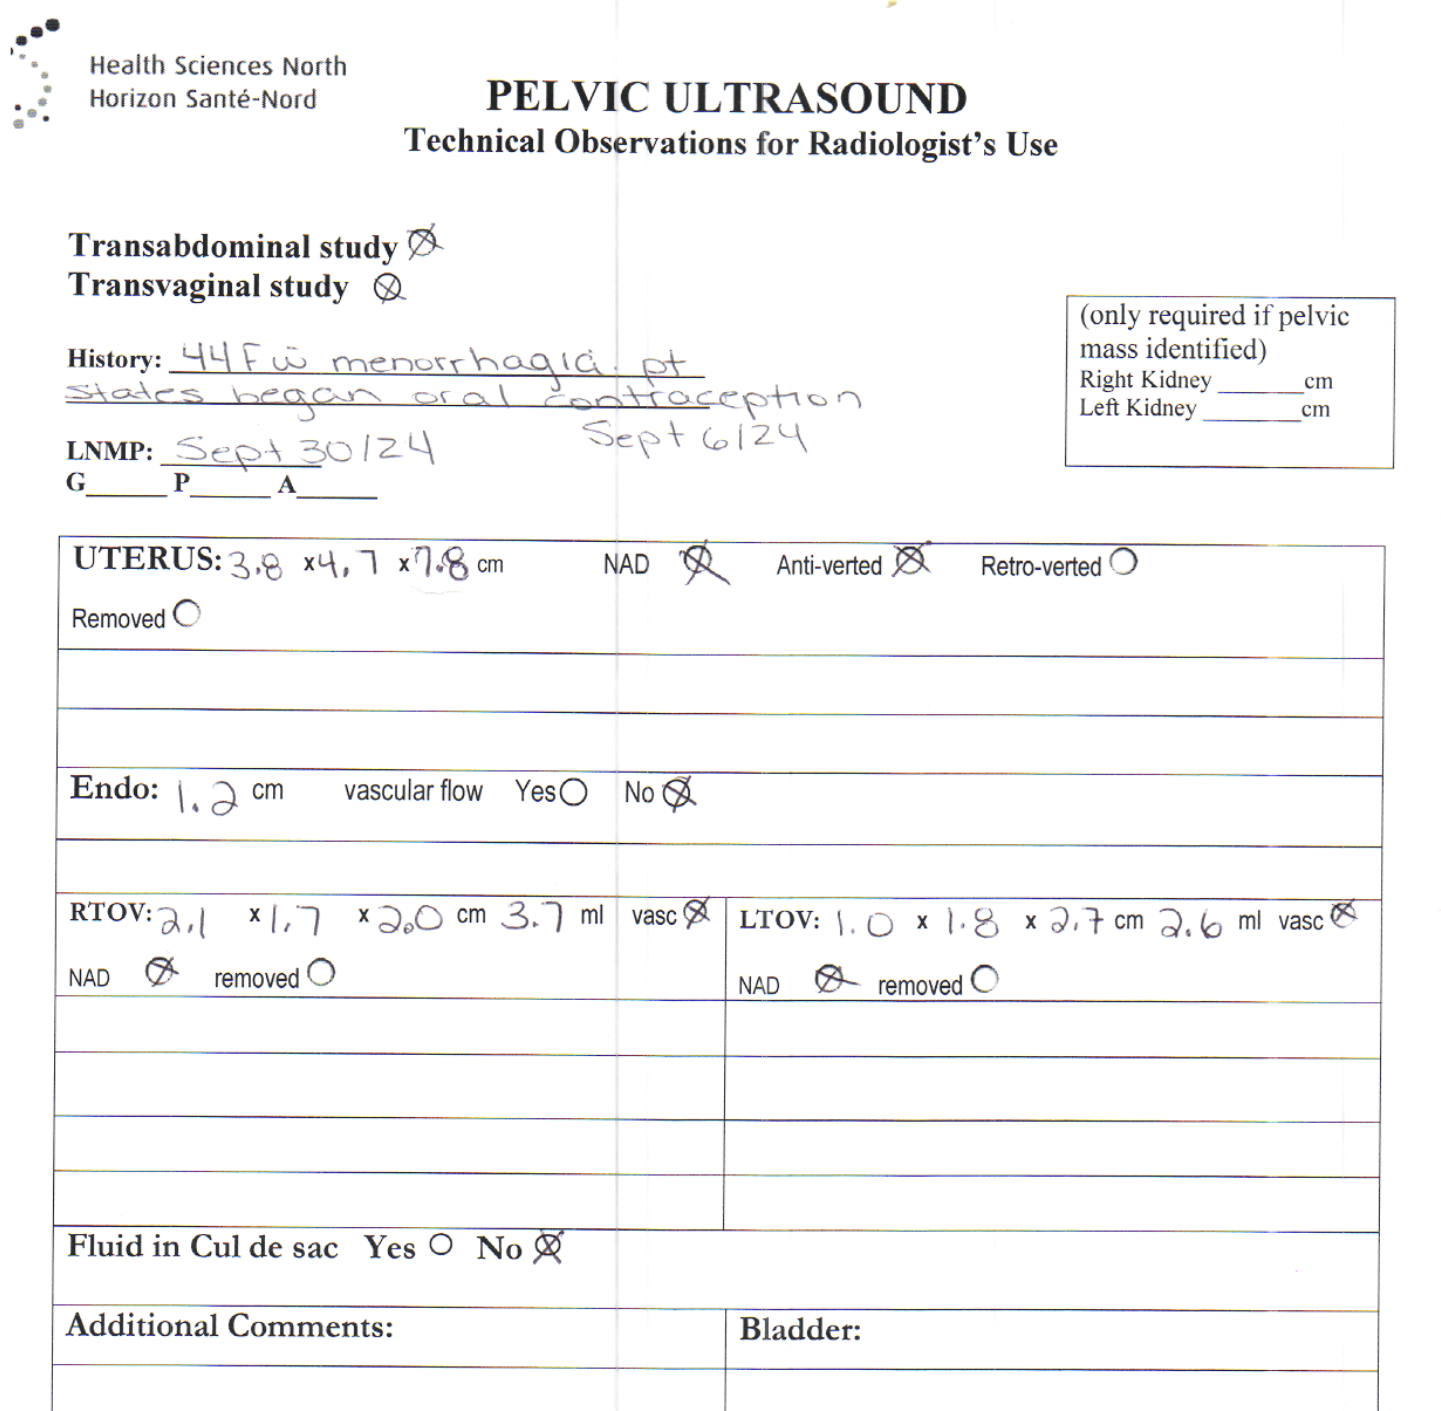 Health Sciences North
Horizon Santé-Nord
PELVIC ULTRASOUND
Technical Observations for Radiologist's Use
Transabdominal study
Transvaginal study
History: 44F w̄ menorrhagia. pt
states began oral contraception
Sept 6/24
LNMP: Sept 30/24
G______ P______ A______
(only required if pelvic
mass identified)
Right Kidney ______cm
Left Kidney ______cm
UTERUS: 3.8 x 4.7 x 7.8 cm NAD Anti-verted Retro-verted
Removed
Endo: 1.2 cm vascular flow Yes No
RTOV: 2.1 x 1.7 x 2.0 cm 3.7 ml vasc
NAD removed
LTOV: 1.0 x 1.8 x 2.7 cm 2.6 ml vasc
NAD removed
Fluid in Cul de sac Yes No
Additional Comments:
Bladder: